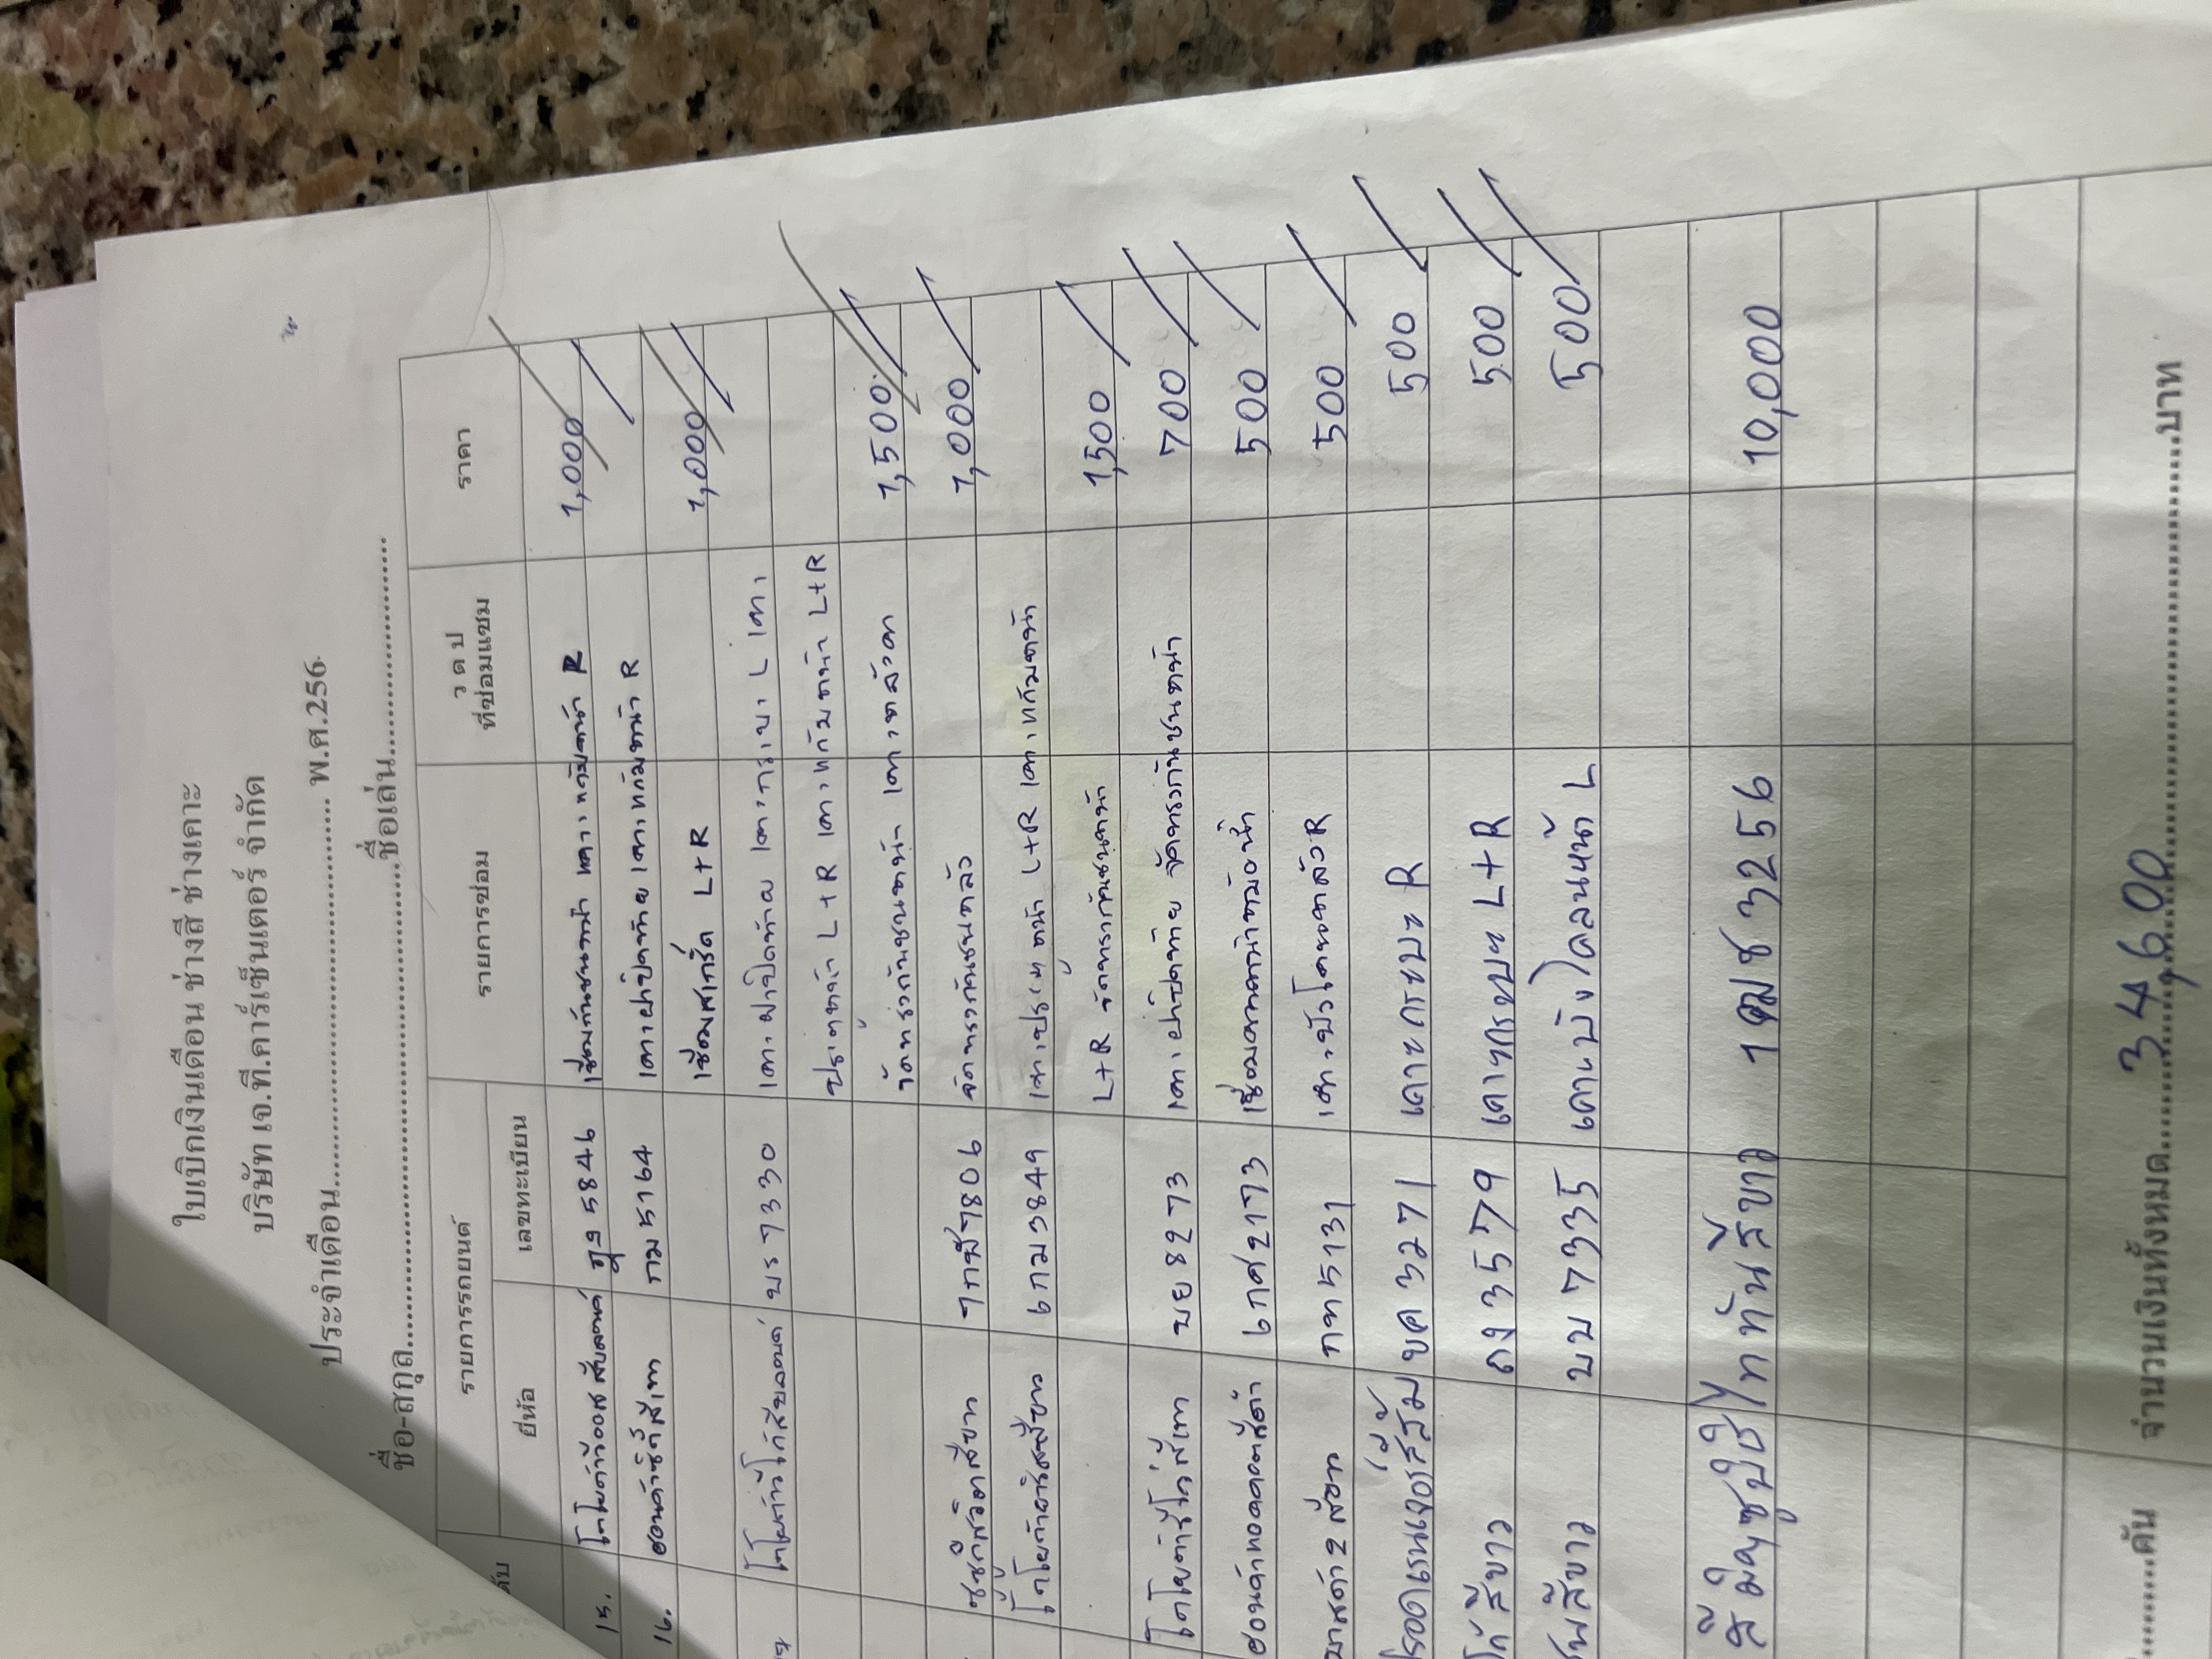 ใบเบิกเงินเดือน ช่างสี ช่างเคาะ
บริษัท เจ.ที.คาร์เซ็นเตอร์ จำกัด
ประจำเดือน............ พ.ศ.256
ชื่อ-สกุล............ชื่อเล่น............
รายการรถยนต์ รายการซ่อม ว ด ป ที่ซ่อมแซม ราคา
ยี่ห้อ เลขทะเบียน
15. 5846 เชื่อมกันชนหน้า เคาะแก้มหน้า R 1,000
16. ฮอนด้าซิตี้สีเทา กม 5164 เคาะฝาปิดท้าย เคาะแก้มหน้า R
เชื่อมสเกิร์ต L+R 1,000
บร 7330 เคาะฝาปิดท้าย เคาะกระบะ L เคาะ
ประตูหน้า L+R เคาะแก้มหน้า L+R
จัดทรงกันชนหน้า เคาะหลังคา 1,500
ซูซูกิสวิฟสีขาว 7806 จัดทรงกันชนหลัง 1,000
โตโยต้ายาริสสีขาว 6กม 3849 เคาะประตูหน้า L+R เคาะแก้มหน้า
L+R จัดทรงกันชนหน้า 1,500
โตโยต้ารีโว่สีเทา บย 8273 เคาะฝาปิดท้าย จัดทรงกันชนหน้า 700
6กศ 2173 500
กท 5131 เคาะบังโคลนหลัง R 500
สีส้ม ขค 3271 เคาะกระบะ R 500
สีขาว ถง 3579 เคาะกระบะ L+R 500
สีขาว บบ 7335 เคาะบังโคลนหน้า L 500
ไททันสีขาว 1ฒช 3256 10,000
............คัน จำนวนเงินทั้งหมด............34,600............บาท